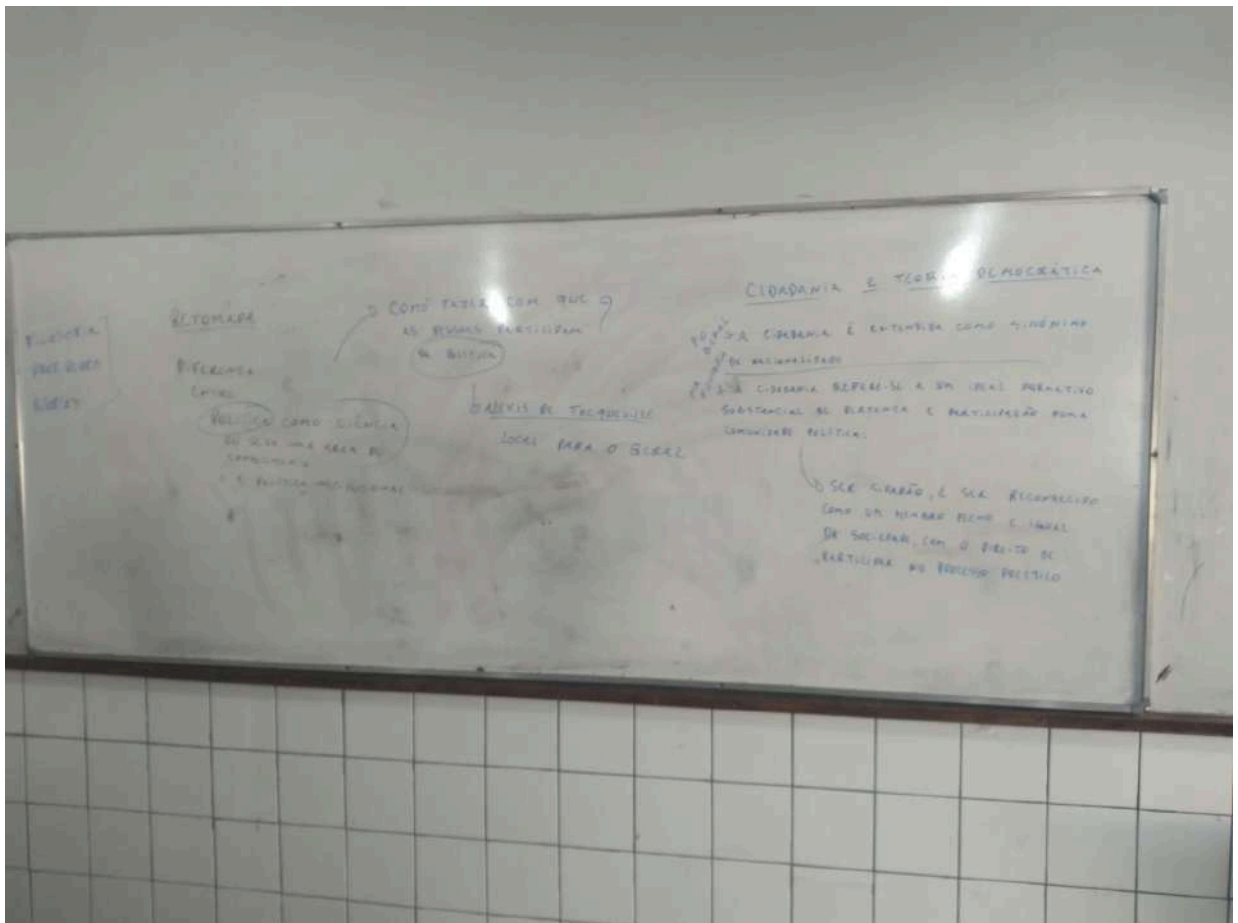 RETOMADA
DIFERENÇA
ENTRE
POLÍTICA COMO CIÊNCIA
OU SEJA UMA ÁREA DO
E POLÍTICA INSTITUCIONAL
COMO FAZER COM QUE
AS PESSOAS PARTICIPAM ?
DA POLÍTICA
ALEXIS DE TOCQUEVILLE
LOCAL PARA O GERAL
CIDADANIA E TEORIA DEMOCRÁTICA
A CIDADANIA É ENTENDIDA COMO SINÔNIMO
DE NACIONALIDADE
A CIDADANIA REFERE-SE A UM IDEAL NORMATIVO
SUBSTANCIAL DE PERTENÇA E PARTICIPAÇÃO NUMA
COMUNIDADE POLÍTICA.
SER CIDADÃO, É SER RECONHECIDO
COMO UM MEMBRO PLENO E IGUAL
DA SOCIEDADE, COM O DIREITO DE
PARTICIPAR NO PROCESSO POLÍTICO